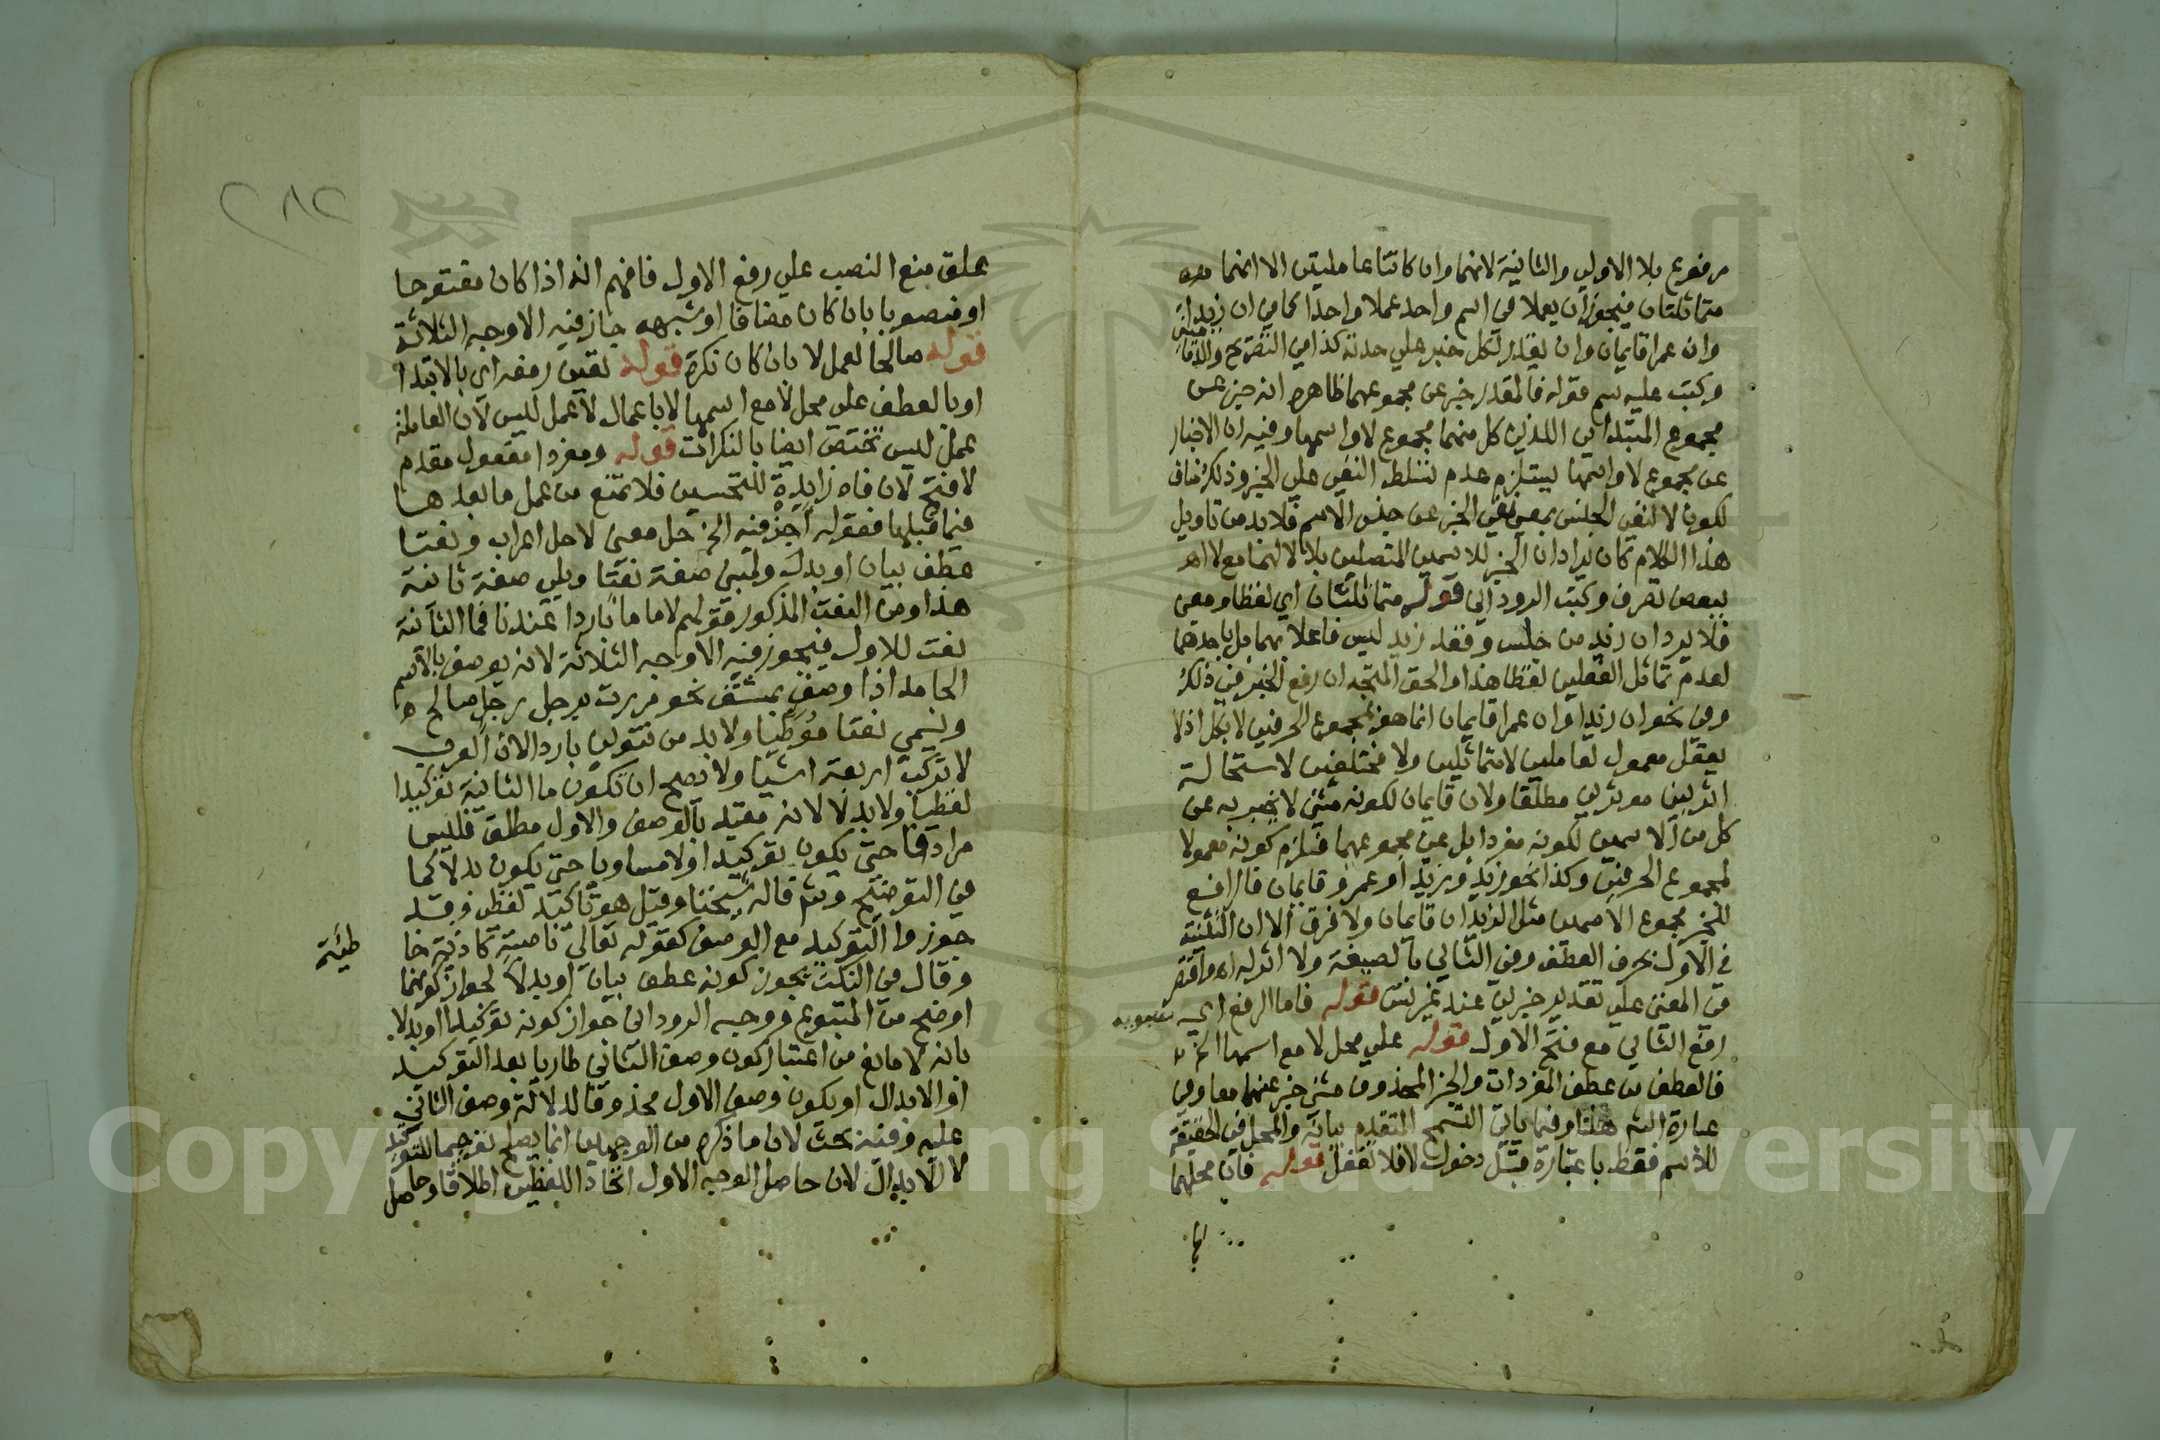 مرفوع بلا الاولي والثانية لانهما وان كانتا عاملتين الا انهما
متماثلتان فيجوز ان يعملا في اسم واحد عملا واحدا كما في ان زيدا
وان عمرا قايمان وان يقدر لكل خبر علي حدته كذا في التصريح
وكتب عليه سم قوله فالمقدر خبر عن مجموعهما ظاهره انه خبر عن
مجموع المبتدأين اللذين كل منهما مجموع لا واسمها وفيه ان الاخبار
عن مجموع لا واسمها يستلزم عدم تسلط النفي علي الخبر وذلك مناف
لكون لا لنفي الجنس بمعني نفي الخبر عن جنس الاسم فلا بد من تاويل
هذا الكلام كان يراد ان الخبر للاسمين المتصلين بلا لا لهما مع لا اهـ
ببعض تصرف وكتب الروداني قوله متماثلتان اي لفظا ومعني
فلا يرد ان زيد من جلس وقعد زيد ليس فاعلا بهما بل باحدهما
لعدم تماثل الفعلين لفظا هذا والحق المتجه ان رفع الخبر في ذلك
وفي نحو ان زيدا وان عمرا قايمان انما هو بمجموع الحرفين لا بكل اذ لا
يعقل معمول لعاملين لا متماثلين ولا مختلفين لاستحالة
اثر بين موثرين مطلقا ولان قايمان لكونه مثني لا يخبر به عن
كل من الاسمين لكونه مفردا بل عن مجموعهما فيلزم كونه معمولا
لمجموع الحرفين وكذا نحو زيد وزيد او عمرو قايمان فالرافع
للخبر مجموع الاسمين مثل الزيدان قايمان ولا فرق الا ان التثنية
في الاول بحرف العطف وفي الثاني بالصيغة ولا اثر له اهـ
في المعني علي تقدير خبرين عند غير س قوله فاما الرفع اي
سيبويه
رفع الثاني مع فتح الاول قوله علي محل لا مع اسمها الخ
فالعطف من عطف المفردات والخبر المحذوف مثني خبر عنهما معا وفي
عبارة الش هنا وفيما ياتي التسمح المتقدم بيانه والمحل في الحقيقة
للاسم فقط باعتباره قبل دخول لا فلا تغفل قوله فان محلهما
علق منع النصب علي رفع الاول فافهم انه اذا كان مفتوحا
او منصوبا بان كان مضافا او شبهه جاز فيه الاوجه الثلاثة
قوله صالحا لعمل لا بان كان نكرة قوله تعين رفعه اي بالابتدا
او بالعطف علي محل لا مع اسمها لا باعمال لا عمل ليس لان العاملة
عمل ليس تختص ايضا بالنكرات قوله ومفردا مفعول مقدم
لافتح لان فاه زايدة للتحسين فلا تمنع من عمل ما بعدها
فيما قبلها فقوله اجز فيه الخ حل معني لا حل اعراب ونعتا
عطف بيان او بدل ولمبني صفة نعتا ويلي صفة ثانية
هذا ومن النعت المذكور قولهم لا ماء ما باردا عندنا فما الثانية
نعت للاول فيجوز فيه الاوجه الثلاثة لانه يوصف بالاسم
الجامد اذا وصف بمشتق نحو مررت برجل رجل صالح
ويسمي نعتا موطيا ولا بد من تنوين باردا لان العرب
لا تركب اربعة اشيا ولا يصح ان تكون ما الثانية توكيدا
لفظيا ولا بدلا لانه مقيد بالوصف والاول مطلق فليس
مرادفا حتي يكون توكيدا ولا مساويا حتي يكون بدلا كما
في التوضيح وش قاله شيخنا وقيل هو تاكيد لفظي وقد
جوزوا التوكيد مع الوصف كقوله تعالي ناصية كاذبة خا
طئة
وقال في النكت يجوز كونه عطف بيان او بدلا لجواز كونهما
اوضح من المتبوع ووجه الروداني جواز كونه توكيدا او بدلا
بانه لا مانع من اعتبار كون وصف الثاني طاريا بعد التوكيد
او الابدال او يكون وصف الاول محذوفا لدلالة وصف الثاني
عليه وفيه بحث لان ما ذكره من الوجهين انما يصلح توجيها للتوكيد
لا للابدال لان حاصل الوجه الاول اتحاد اللفظين اطلاقا وحاصل
٢٨٢
Copyright © King Saud University